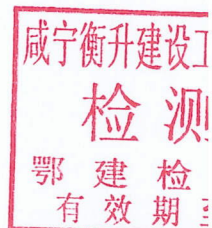 咸宁衡升建设工
检测
鄂建检
有效期